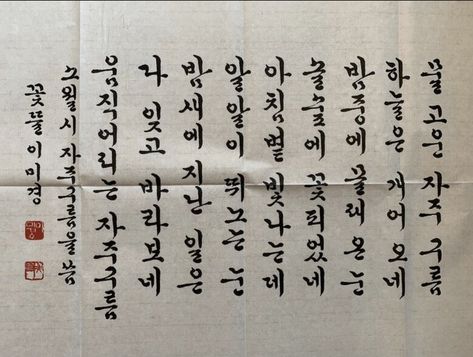 물 고운 자주 구름
하늘은 개어 오네
밤중에 몰래 온 눈
솔숲에 꽃피었네
아침볕 빛나는데
알알이 뛰노는 눈
밤새에 지난 일은
다 잊고 바라보네
움직어리는 자주구름
소월시 자주구름을 씀
꽃뜰 이미경